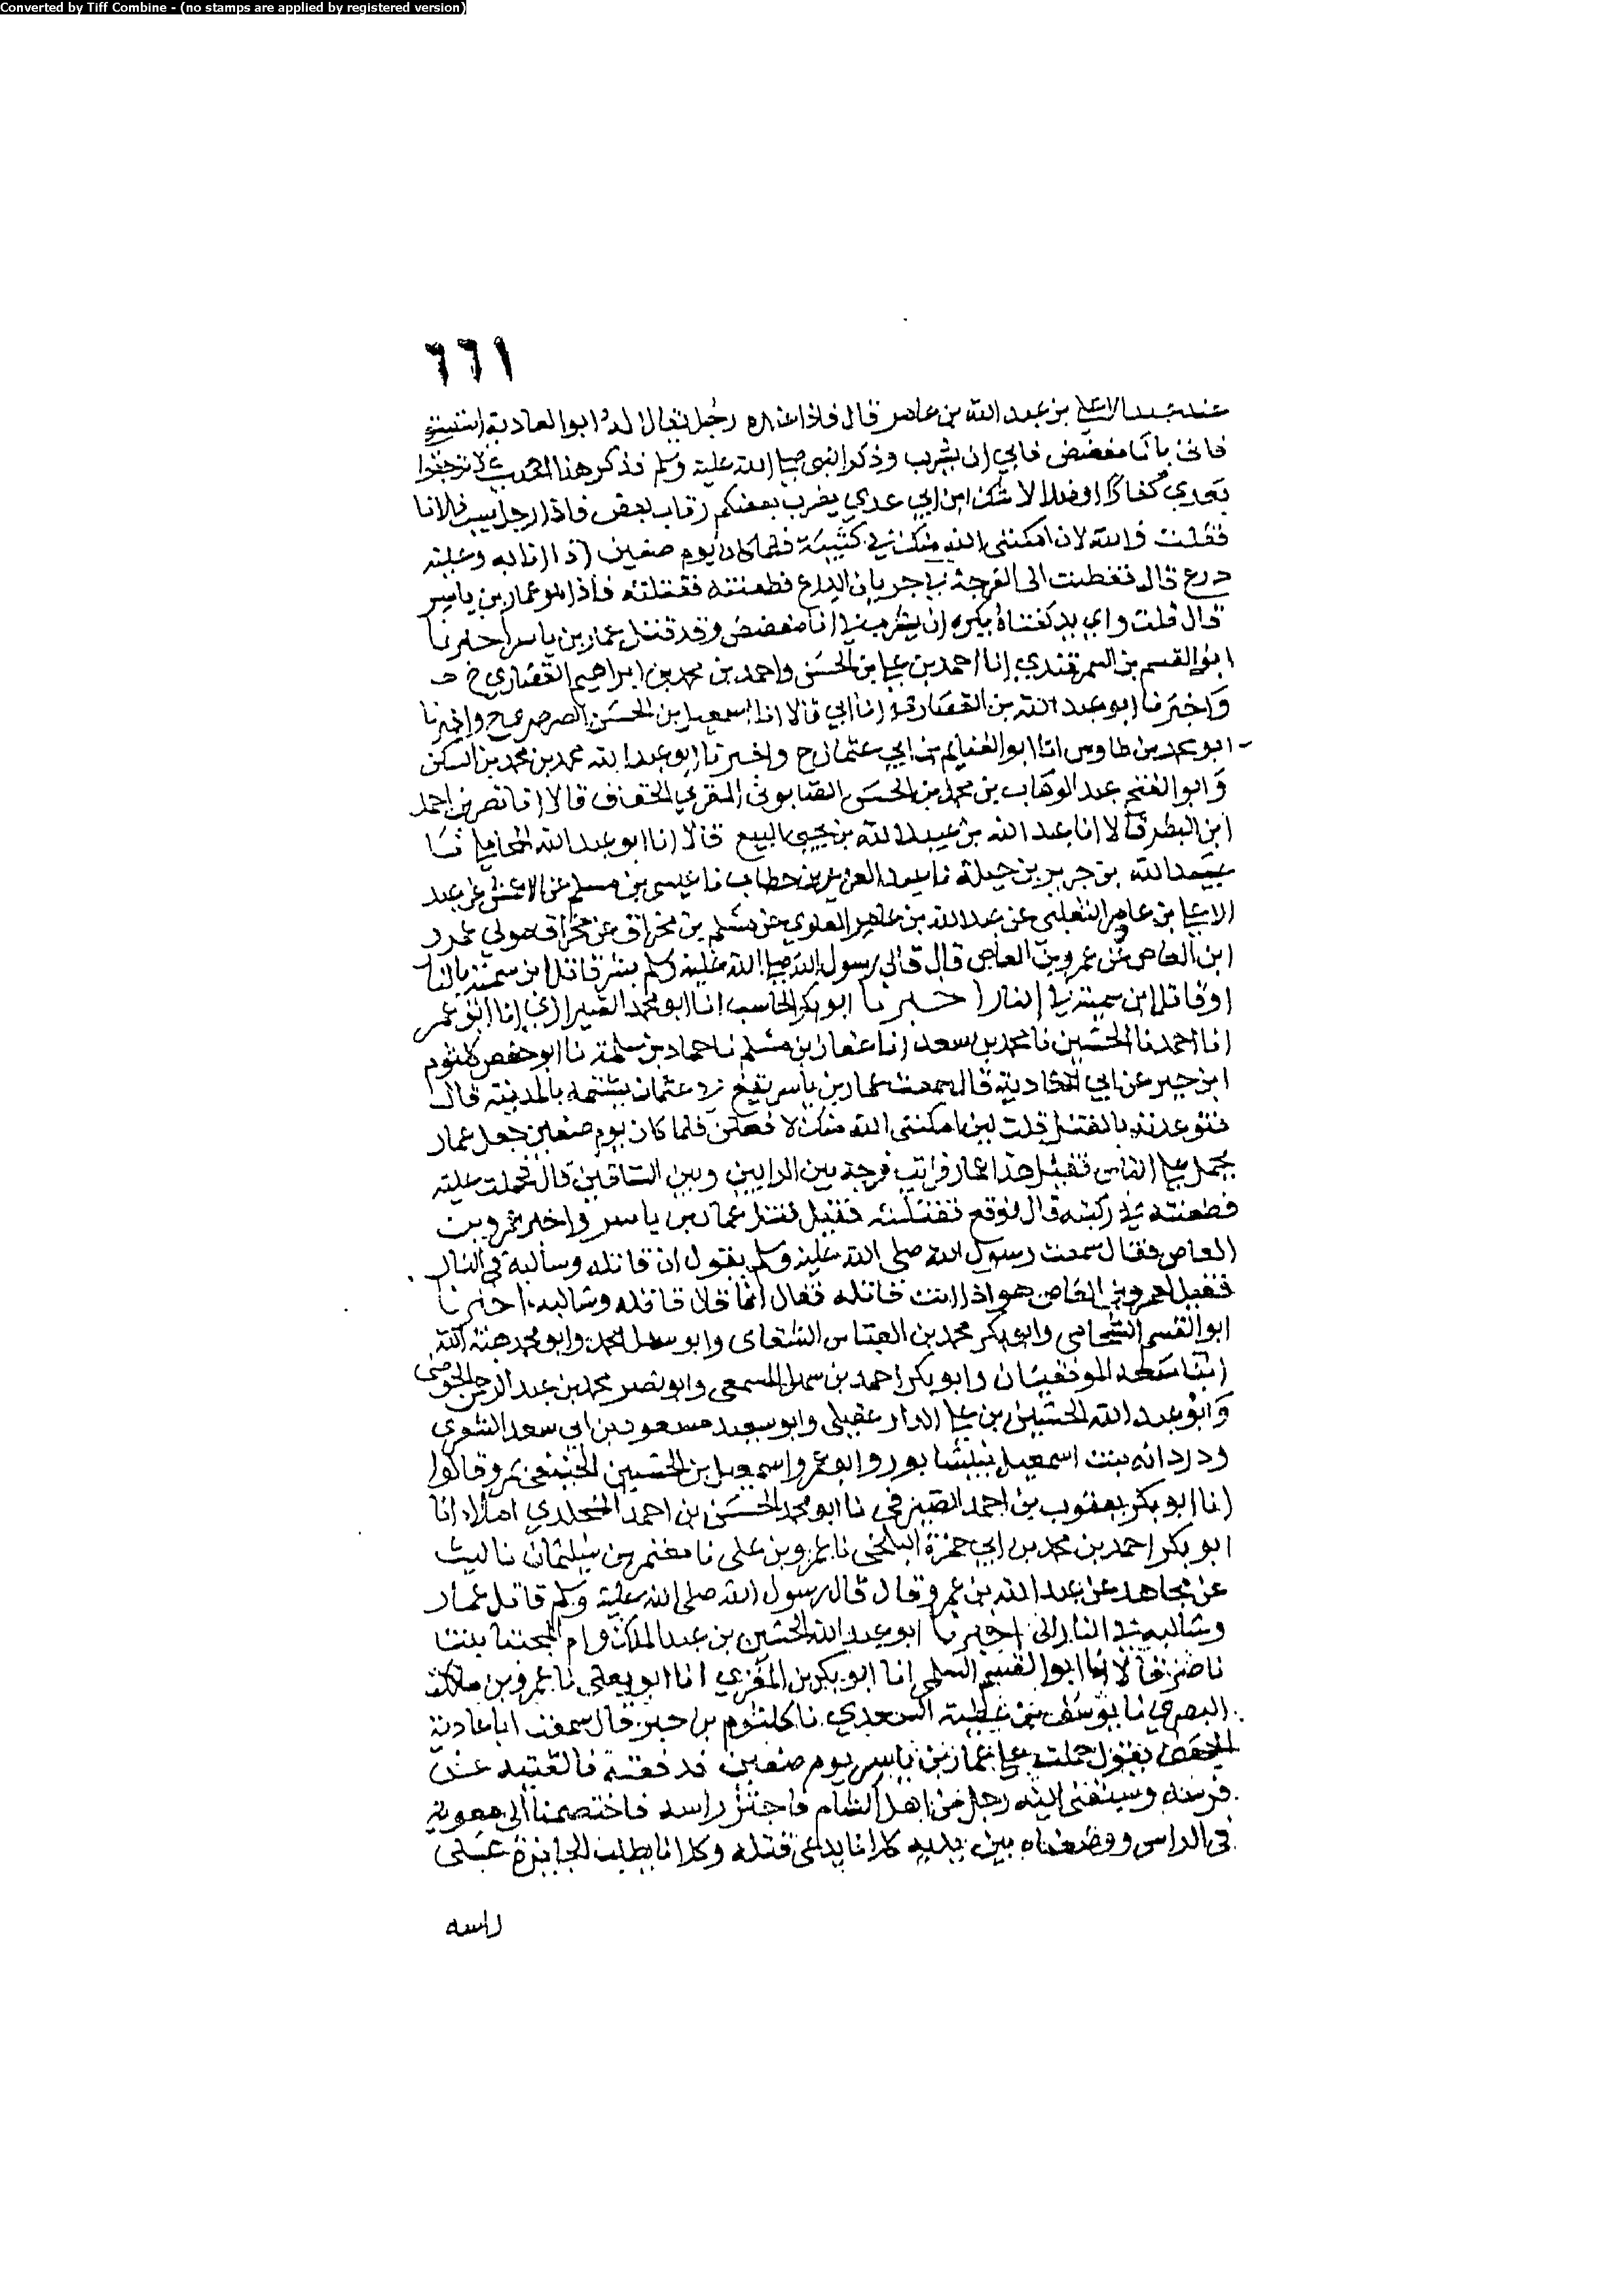 Converted by Tiff Combine - (no stamps are applied by registered version)
٦٦١
عند عبد الاعلى بن عبد الله بن عامر قال فاذا عنده رجل يقال له ابو الغادية استسقى
فاتى باناء مفضض فابى ان يشرب وذكر النبي صلى الله عليه وسلم فذكر هذا الحديث لا ترجعوا
بعدي كفارا او ضلالا شك ابن ابي عدي يضرب بعضكم رقاب بعض فاذا رجل يسب فلانا
فقلت والله لان امكنني الله منك في كتيبة فلما كان يوم صفين اذا انا به وعليه
درع قال ففطنت الى الفرجة في جربان الدرع فطعنته فقتلته فاذا هو عمار بن ياسر
قال قلت واي يد كفتاه يكره ان يشرب في انا مفضض وقد قتل عمار بن ياسر اخبرنا
ابو القسم بن السمرقندي انا احمد بن علي بن الحسن واحمد بن محمد بن ابراهيم القصاري ح
واخبرنا ابو عبد الله بن القصاري انا ابي قالا انا اسمعيل بن الحسن الصرصري ح واخبرنا
ابو محمد بن طاوس انا ابو الغنايم بن ابي عثمان ح واخبرنا ابو عبد الله محمد بن محمد بن السكن
وابو الفتح عبد الوهاب بن محمد بن الحسن الصابوني المقري الخفاف قالا انا نصر بن احمد
ابن البطر قالا انا عبد الله بن عبيد الله بن يحيى البيع قالا انا ابو عبد الله المحاملي نا
عبيد الله بن جرير بن جبلة نا عبد العزيز بن خطاب نا عيسى بن مسلم عن الاعشى عن عبد
الاعلى بن عامر الثعلبي عن عبد الله بن عامر العلوي عن مسلم بن مخراق عن مخراق مولى عمرو
ابن العاص عن عمرو بن العاص قال قال رسول الله صلى الله عليه وسلم بشر قاتل ابن سمية بالنار
او قاتل ابن سمية في النار اخبرنا ابو بكر الحاسب انا ابو محمد الشيرازي انا ابو عمر
انا احمد نا الحسين نا محمد بن سعد انا عفان بن مسلم نا حماد بن سلمة نا ابو حفص كلثوم
ابن جبر عن ابي الغادية قال سمعت عمار بن ياسر يقع في عثمان يشتمه بالمدينة قال
فتوعدته بالقتل قلت لين امكنني الله منك لافعلن فلما كان يوم صفين جعل عمار
يحمل على الناس فقيل هذا عمار فرايت فرجة بين الرايين وبين الساقين قال فحملت عليه
فطعنته في ركبته قال فوقع فقتلته فقيل قتل عمار بن ياسر واخبر عمرو بن
العاص فقال سمعت رسول الله صلى الله عليه وسلم يقول ان قاتله وسالبه في النار
فقيل لعمرو بن العاص هو اذا انت قاتله فقال انما قال قاتله وسالبه اخبرنا
ابو القسم الشحامي وابو بكر محمد بن العباس الشقاني وابو سهل محمد وابو محمد هبة الله
ابنا سعد الموفقيان وابو بكر احمد بن سهل المسمعي وابو نصر محمد بن عبد الرحمن الحوضي
وابو عبد الله الحسين بن علي الدار عقيلي وابو سعيد مسعود بن ابي سعد الشعري
ودردانه بنت اسمعيل بنيسابور وابو عمرو اسمعيل بن الحسين الخبيفي بمرو قالوا
انا ابو بكر يعقوب بن احمد الصيرفي نا ابو محمد الحسن بن احمد المخلدي املاء انا
ابو بكر احمد بن محمد بن ابي حمزة البلخي نا عمرو بن علي نا معتمر بن سليمان نا ليث
عن مجاهد عن عبد الله بن عمرو قال قال رسول الله صلى الله عليه وسلم قاتل عمار
وسالبه في النار اخبرنا ابو عبد الله الحسين بن عبد الملك وام المجتبا بنت
ناصر قالا انا ابو القسم السلمي انا ابو بكر بن المقري انا ابو يعلى نا عمرو بن مالك
البصري نا يوسف بن عطية السعدي نا كلثوم بن جبر قال سمعت ابا غادية
يقول حملت على عمار بن ياسر يوم صفين فدفعته فالقيته عن
فرسه وسبقني اليه رجل من اهل الشام فاجتز راسه فاختصمنا الى معوية
في الراس ووضعناه بين يديه كلانا يدعي قتله وكلانا يطلب الجايزة على
راسه